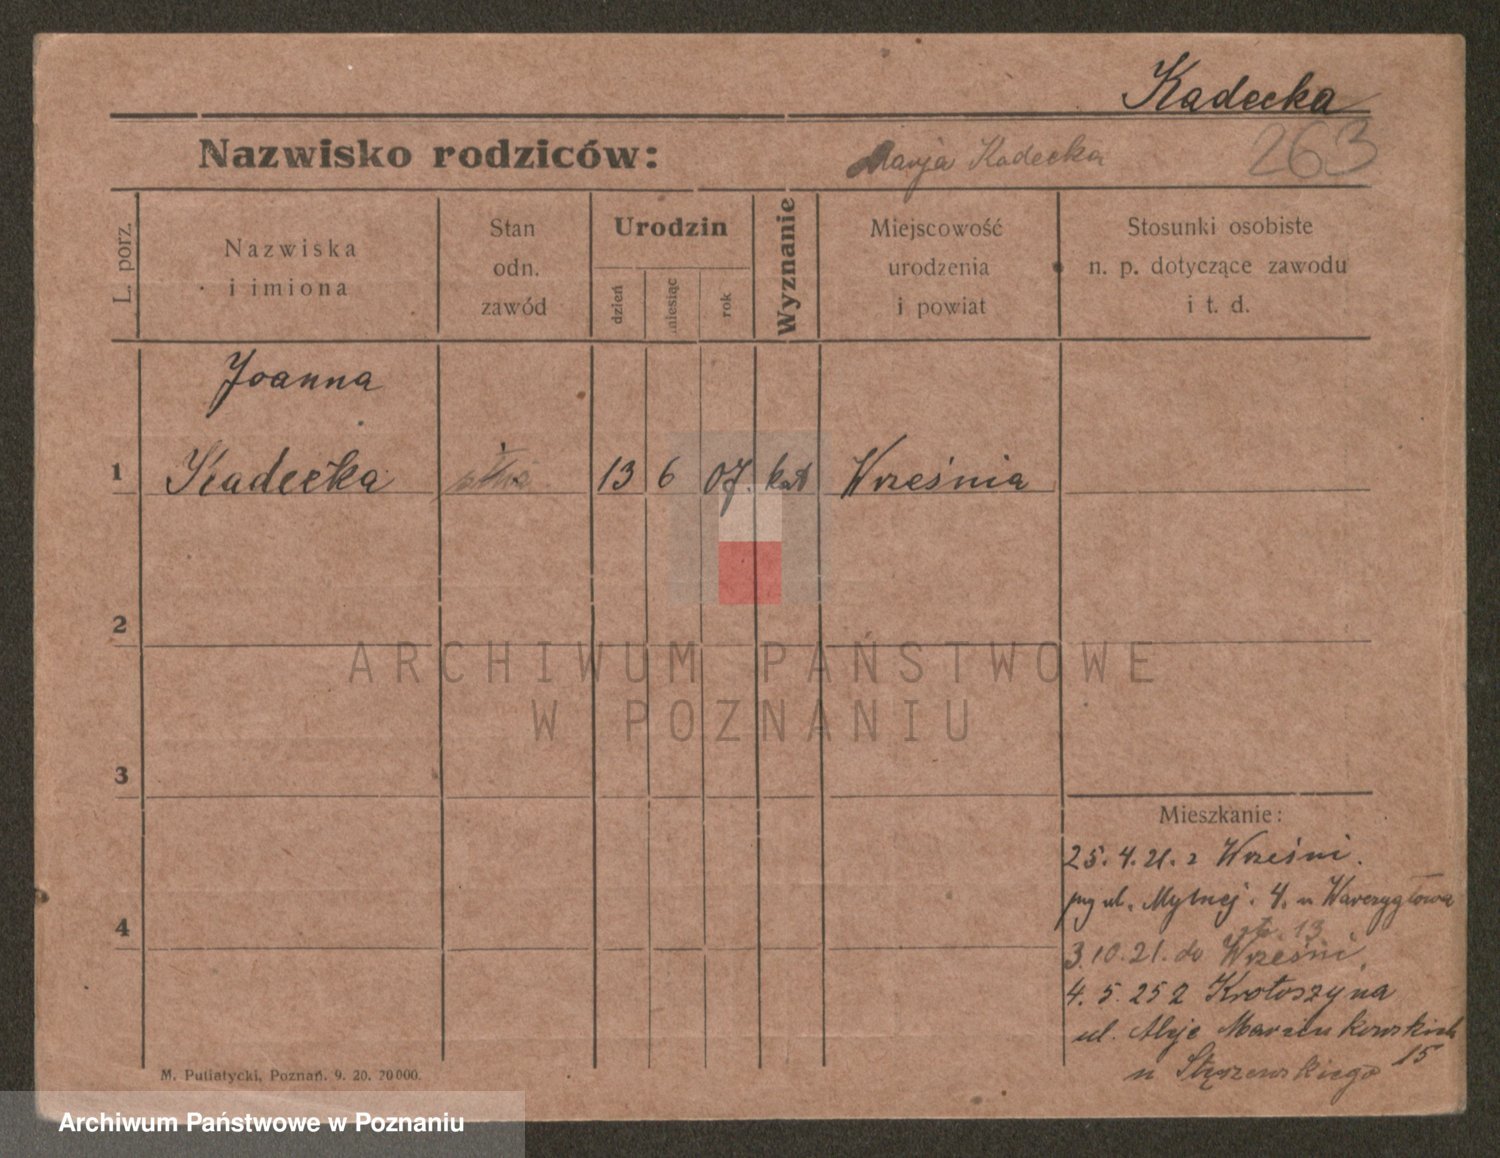 Kadecka
Nazwisko rodziców: Marja Kadecka 263
L. porz.
Nazwiska
i imiona
Stan
odn.
zawód
Urodzin
dzień
miesiąc
rok
Wyznanie
Miejscowość
urodzenia
i powiat
Stosunki osobiste
n. p. dotyczące zawodu
i t. d.
Joanna
1 Kadecka 13 6 07. kat Września
2
3
4
Mieszkanie:
25.4.21. z Wrześni.
ul. Mylnej. 4. u
13
3.10.21. do Wrześni.
4. 5. 25 z Krotoszyna
ul. Aleje Marcinkowskich
15
u
M. Putiatycki, Poznań. 9. 20. 20000.
ARCHIWUM PAŃSTWOWE
W POZNANIU
Archiwum Państwowe w Poznaniu